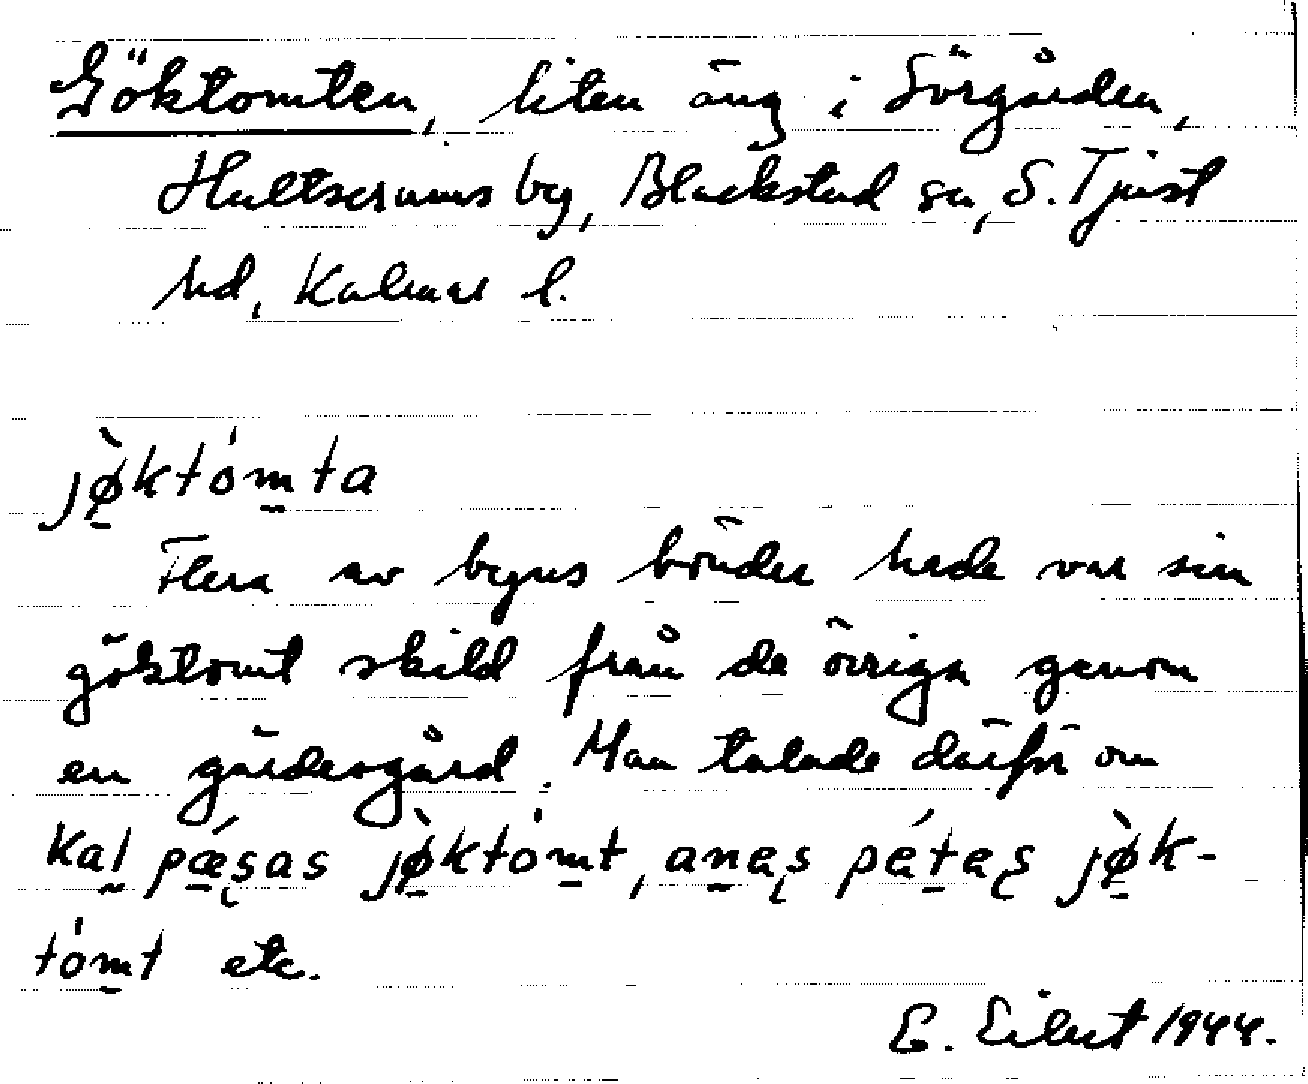 Göktomten, liten äng i Sörgården,
Hultserums by, Blackstad sn, S. Tjust
hd, Kalmar l.
jø̀któmta
Flera av byns bönder hade var sin
göktomt skild från de övriga genom
en gärdesgård. Man talade därför om
kal pǽsas jø̀któmt, anəs pétəs jø̀k-
tómt etc.
G. Eilert 1944.